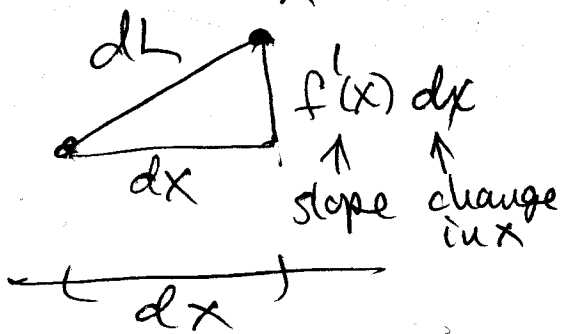 dL
f'(x) dx
dx
slope change
in x
dx